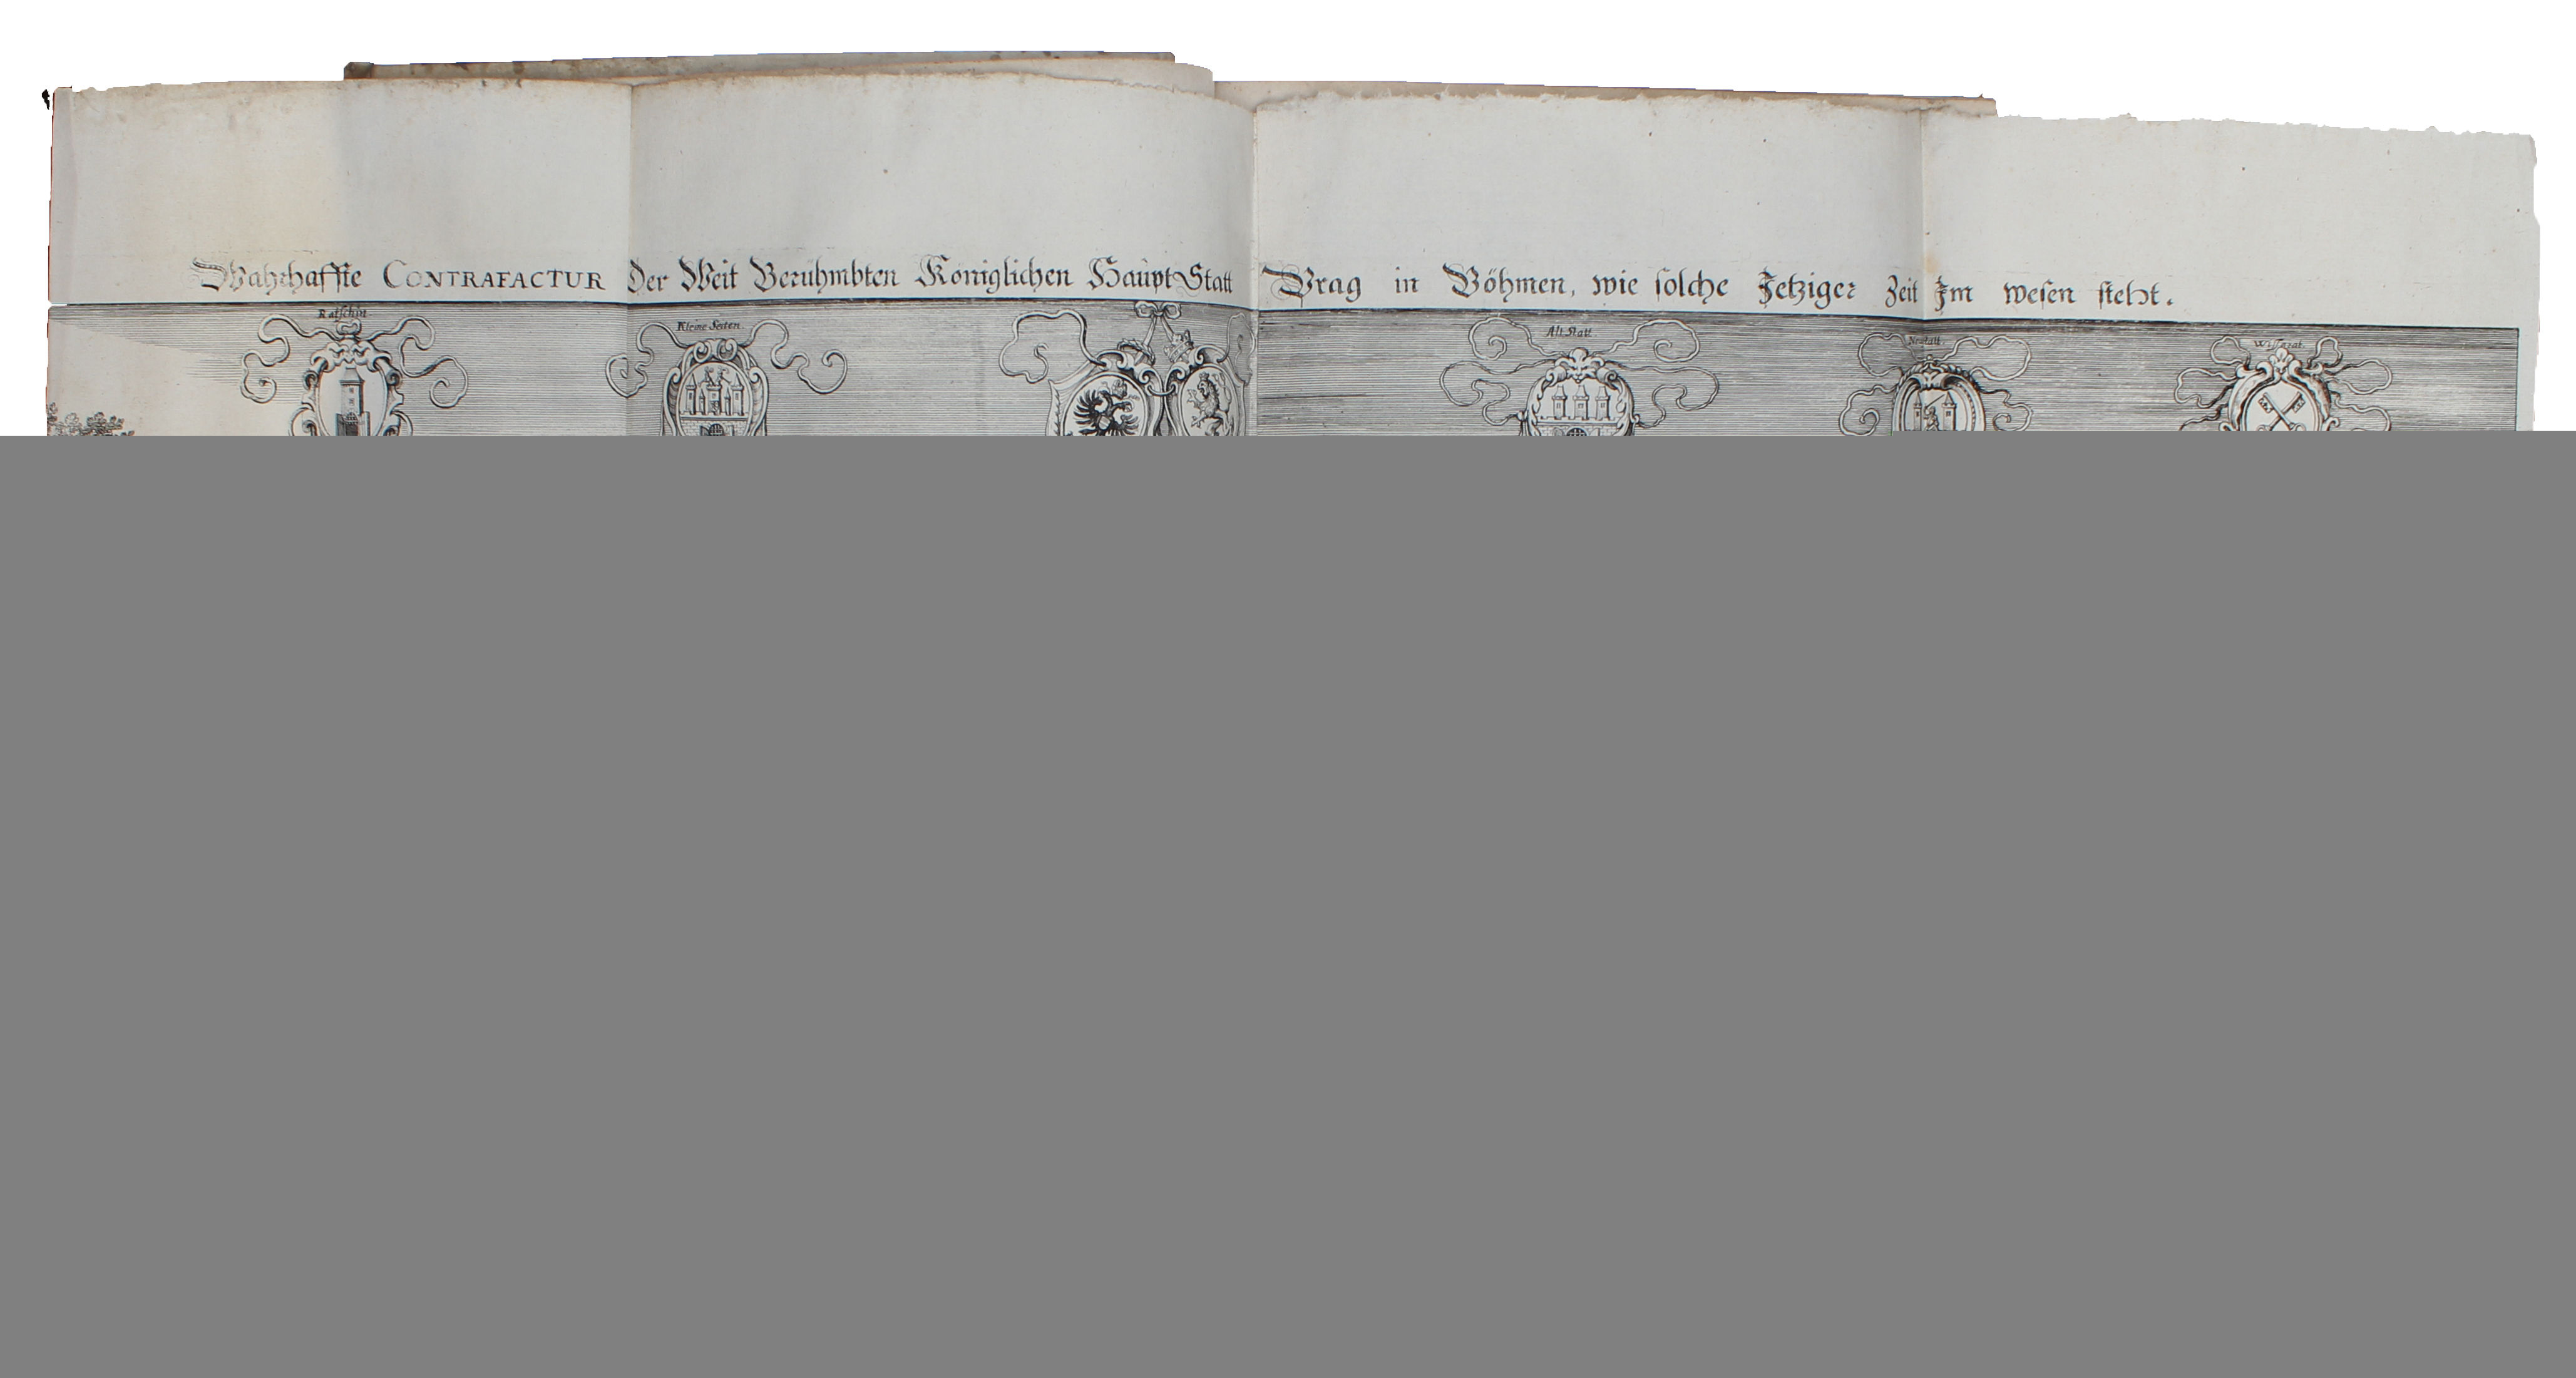 Wahrhaffte CONTRAFACTUR Der Weit Beruhmbten Koniglichen Haupt Statt Prag in Böhmen, wie solche Jetziger Zeit Im wesen steht.
Ratschin
Kleine Seiten
Alt Statt
Neustatt